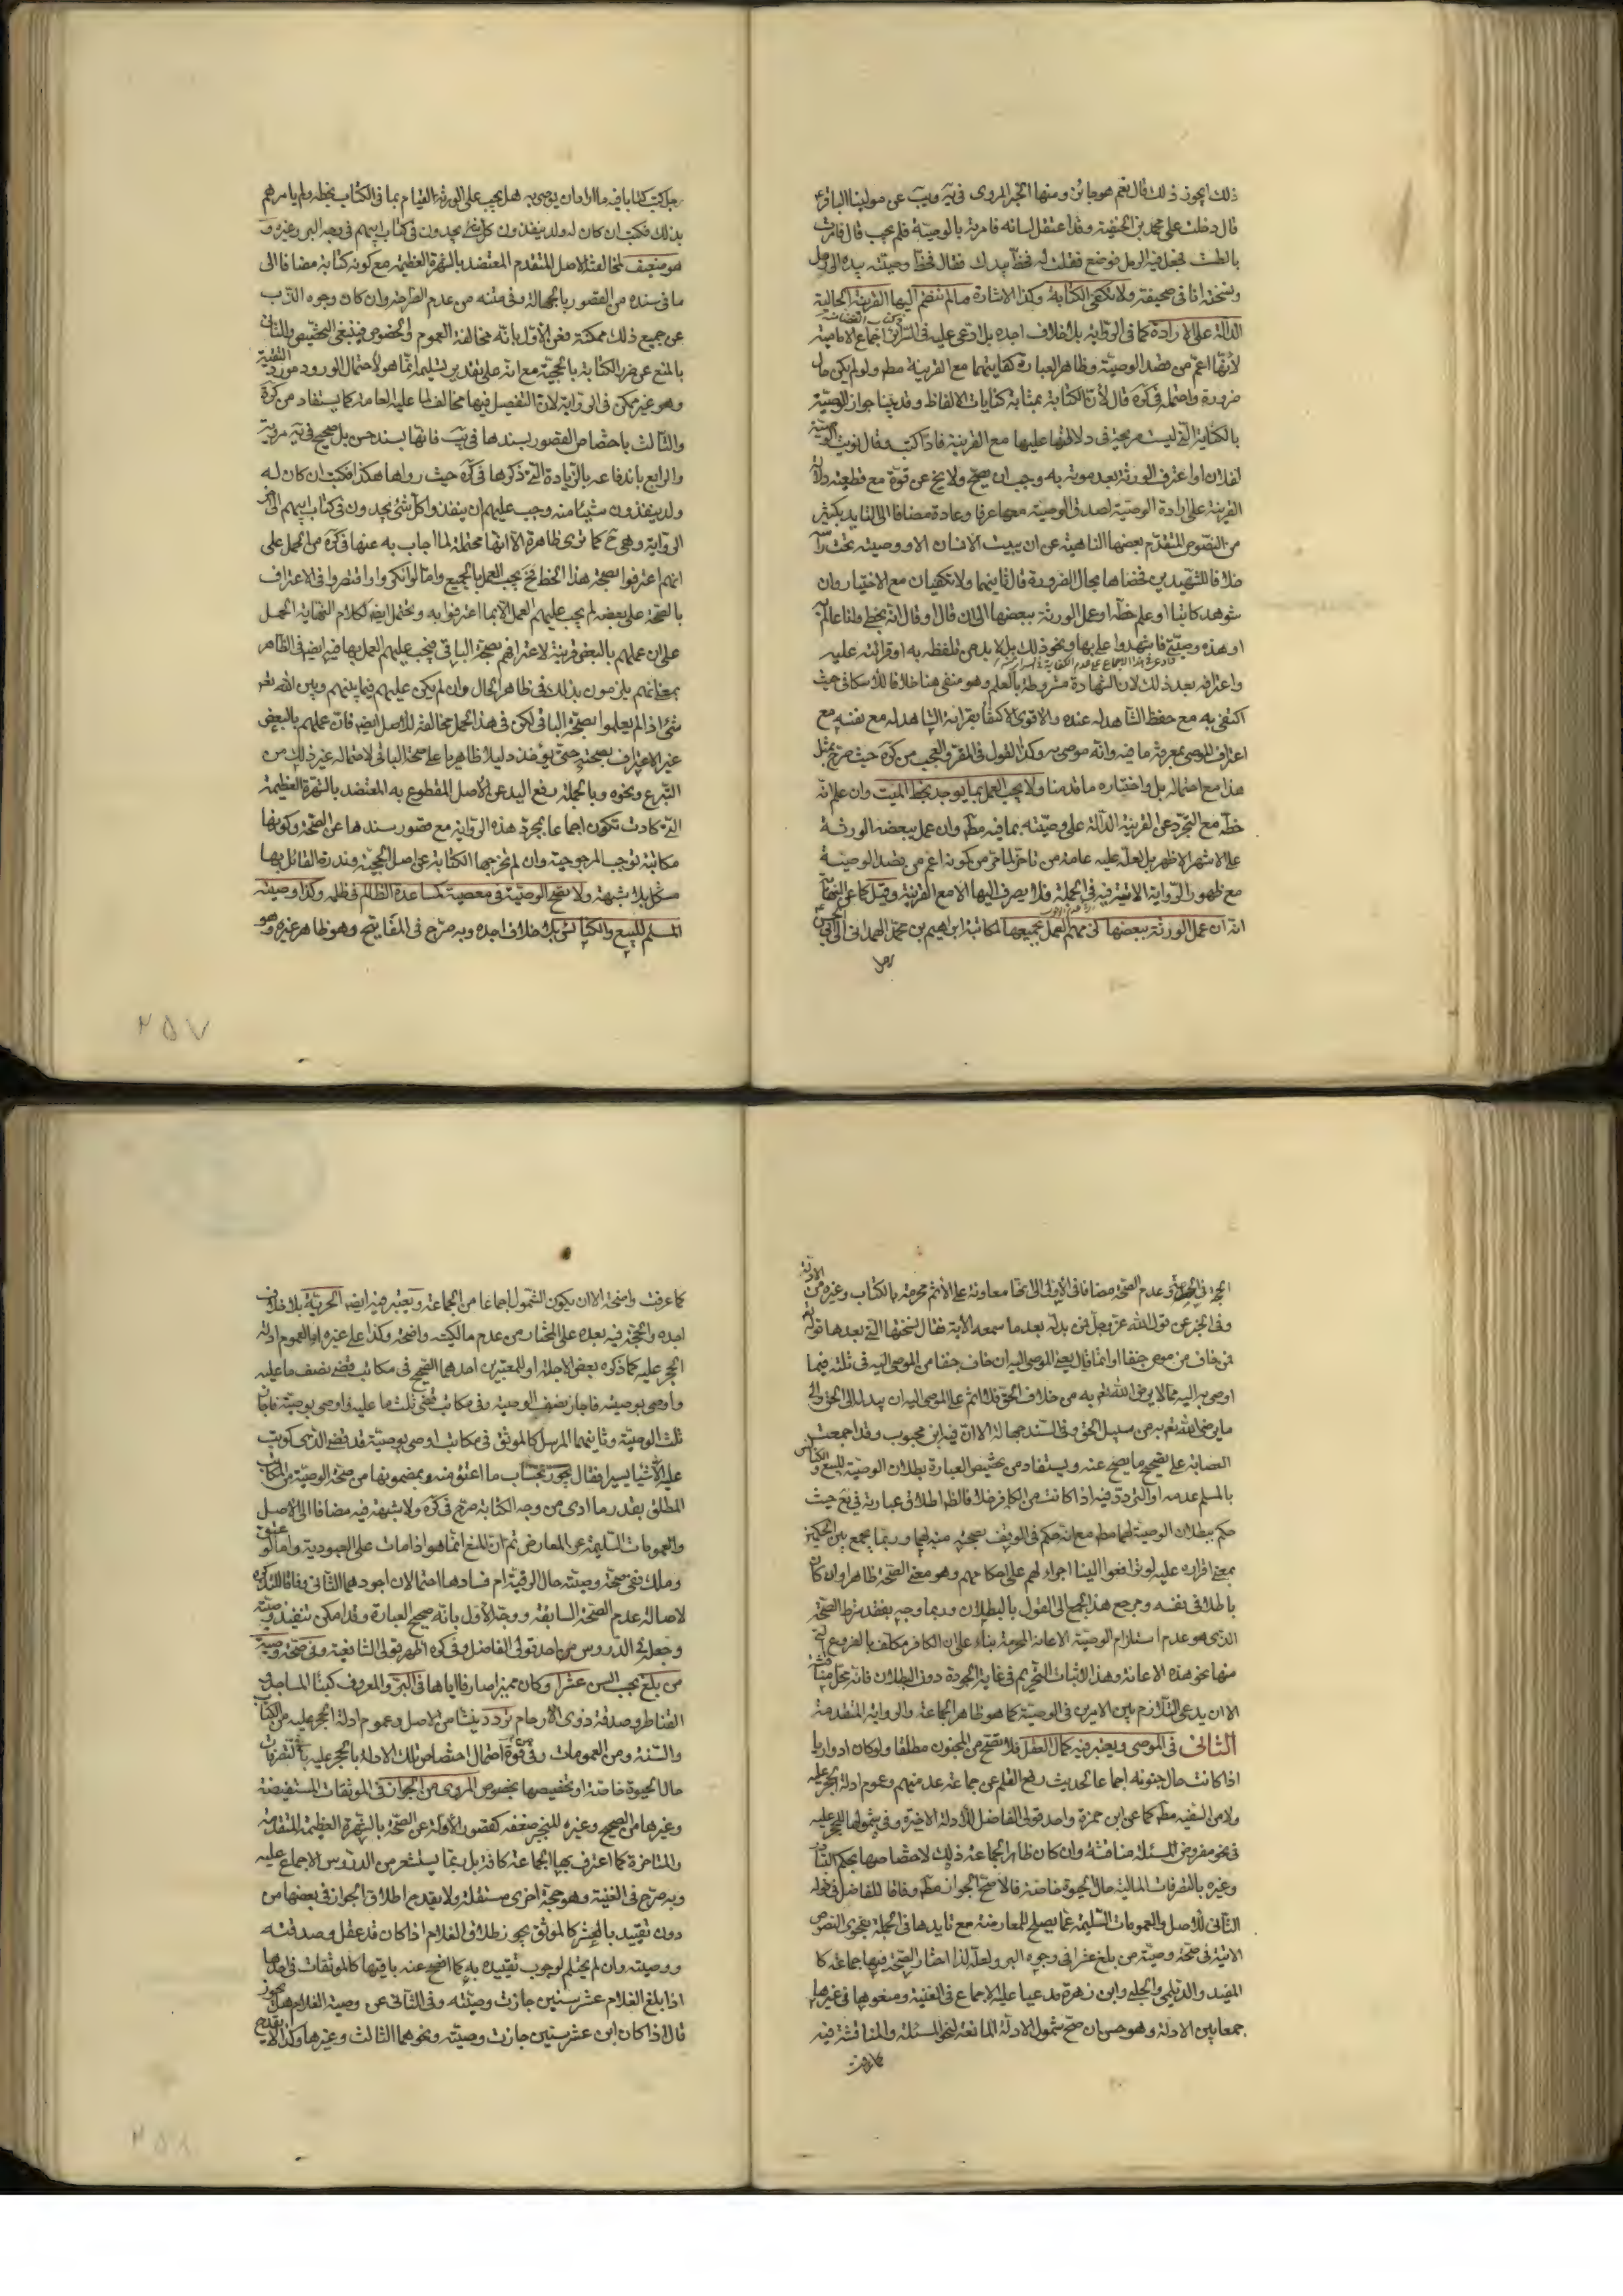 ذلك ايجوز ذلك قال نعم هو جائز ومنها الخبر المروى فى يه ويب عن مولينا الباقر ع
قال دخلت على محمد بن الحنفية وقد اعتقل لسانه فامرته بالوصية فلم يجب قال فامرت
بالطشت فجعل فيه الرمل فوضع فقلت له فخط بيدك فقال فخط وصيته بيده الى رجل
ونسخته انا فى صحيفة ولا تكفى الكتابة وكذا الاشارة ما لم تنضم اليها القرينة الحالية
الدالة على الارادة كما فى الرواية بلا خلاف اجده بل ادعى عليه فى السرائر اجماع الامامية
لأنها اعم من قصد الوصية وظاهر العبارة كفايتهما مع القرينة مطم ولو لم يكن حال
ضرورة واحتمله فى كره قال لأن الكتابة بمثابة كنايات الالفاظ وقد بينا جواز الوصية
بالكناية التى ليست صريحة فى دلالتها عليها مع القرينة فاذا كتب وقال نويت الوصية
لفلان او اعترف الورثة بعد موته به وجب ان يصح ولا يخ عن قوة مع قطعية دلالة
القرينة على ارادة الوصية لصدق الوصية معها عرفا وعادة مضافا الى التايد بكثير
من النصوص المتقدم بعضها الناهية عن ان يبيت الانسان الا ووصيته تحت راسه
خلافا للشهيدين فخصاها بحال الضرورة قال ثانيهما ولا تكفيان مع الاختيار وان
شوهد كاتبا او علم خطه او عمل الورثة ببعضها الى ان قال او قال انه بخطى وانا عالم به
او هذه وصيتى فاشهدوا على بها ونحو ذلك بل لا بد من تلفظه به او قرائته عليه
واعترافه بعد ذلك لان الشهادة مشروطة بالعلم وهو منفى هنا خلافا للاسكافى حيث
اكتفى به مع حفظ الشاهد له عنده والاقوى الاكتفاء بقرائة الشاهد له مع نفسه مع
اعتراف الموصى بمعرفة ما فيه وانه موصى به وكذا القول فى المقر والعجب من كره حيث صرح بمثل
هذا مع احتماله بل واختياره ما قدمنا ولا يجب العمل بما يوجد بخط الميت وان علم انه
خطه مع التجرد عن القرينة الدالة على وصيته بما فيه مطم وان عمل ببعضه الورثة
على الاشهر الاظهر بل لعله عليه عامة من تاخر لما مر من كونه اعم من قصد الوصية
مع ظهور الرواية الاتية فيه فى الجملة فلا يصرف اليها الا مع القرينة وقيل كما عن النهاية
انه ان عمل الورثة ببعضها لزمهم العمل بجميعها لمكاتبة ابراهيم بن محمد الهمدانى الى ابى الحسن ع
رجل
رجل كتب كتابا فيه ما اراد ان يوصى به هل يجب على الورثة القيام بما فى الكتاب بخطه ولم يامرهم
بذلك فكتب ان كان له ولد ينفذون كل شئ يجدون فى كتاب ابيهم فى وجه البر وغيره و
هو ضعيف لمخالفته الاصل المتقدم المعتضد بالشهرة العظيمة مع كونه كتابة مضافا الى
ما فى سنده من القصور بالجهالة وفى متنه من عدم الصراحة وان كان وجوه الذب
عن جميع ذلك ممكنة فعن الأول بانه مخالفة العموم والخصوص فينبغى التخصيص والثانى
بالمنع عن ضرر الكتابة بالحجية مع انه على تقدير تسليمه انما هو لاحتمال الورود مورد التقية
وهو غير ممكن فى الرواية لان التفصيل فيها مخالف لما عليه العامة كما يستفاد من كره
والثالث باختصاص القصور بسندها فى يب فانها بسند حسن بل صحيح فى يه مروية
والرابع باندفاعه بالزيادة التى ذكرها فى كره حيث رواها هكذا فكتب ان كان له
ولد ينفذون شيئا منه وجب عليهم ان ينفذوا كل شئ يجدون فى كتاب ابيهم الى اخر
الرواية وهى ح كما ترى ظاهرة الا انها محتملة لما اجاب به عنها فى كره من الحمل على
انهم اعترفوا بصحة هذا الخط فح يجب العمل بالجميع واما لو انكروا او اقتصروا فى الاعتراف
بالصحة على بعض لم يجب عليهم العمل الا بما اعترفوا به ويحتمل ايضا لكلام النهاية الحمل
على ان عملهم بالبعض قرينة لاعترافهم بصحة الباقى فيجب عليهم العمل بها فيه ايضا فى الظاهر
بمعنى انهم يلزمون بذلك فى ظاهر الحال وان لم يكن عليهم فيما بينهم وبين الله تعالى
شئ اذا لم يعلموا بصحة الباقى لكن فى هذا الحمل مخالفة للأصل ايضا فان عملهم بالبعض
غير الاعتراف بصحته حتى يؤخذ دليلا ظاهريا على صحة الباقى لاحتماله غير ذلك من
التبرع ونحوه وبالجملة رفع اليد عن الاصل المقطوع به المعتضد بالشهرة العظيمة
التى كادت تكون اجماعا بمجرد هذه الرواية مع قصور سندها عن الصحة وكونها
مكاتبة توجب المرجوحية وان لم تخرجها الكتابة عن اصل الحجية وندرة القائل بها
مشكل بلا شبهة ولا تصح الوصية فى معصية كمساعدة الظالم فى ظلمه وكذا وصية
المسلم للبيع والكنائس بلا خلاف اجده وبه صرح فى المفاتيح وهو ظاهر غيره وهو
۲۵۷
الحجة فى وعدم الصحة مضافا فى الاولى الى انها معاونة على الاثم محرمة بالكتاب وغيره من الادلة
وفى الخبر عن قول الله عز وجل فمن بدله بعد ما سمعه الاية فقال نسختها التى بعدها قوله تع
فمن خاف من موص جنفا او اثما قال يعنى الموصى اليه ان خاف جنفا من الموصى اليه فى ثلثه فيما
اوصى به اليه مما لا يرضى الله تعم به من خلاف الحق فلا اثم على الموصى اليه ان يبدله الى الحق والى
ما يرضى الله تعم به من سبيل الحق وفى السند جهالة الا ان فيه ابن محبوب وقد اجمعت
العصابة على تصحيح ما يصح عنه ويستفاد من تخصيص العبارة بطلان الوصية للبيع والكنائس
بالمسلم عدمه او التردد فيه اذا كانت من الكافر خلافا لظ اطلاق عبارته فى يع حيث
حكم ببطلان الوصية لهما مطم مع انه حكم فى الوقف بصحته منه لهما وربما يجمع بين الحكمين
بمعنى اقراره عليه لو ترافعوا الينا اجراء لهم على احكامهم وهو معنى الصحة ظاهرا وان كان
باطلا فى نفسه ومرجع هذا الجمع الى القول بالبطلان وربما وجه بفقد شرط الصحة
الذى هو عدم استلزام الوصية الاعانة المحرمة بناء على ان الكافر مكلف بالفروع التى
منها نحو هذه الاعانة وهذا لاثبات التحريم فى غاية الجودة دون البطلان فانه محل مناقشة
الا ان يدعى التلازم بين الامرين فى الوصية كما هو ظاهر الجماعة والرواية المتقدمة
الثانى فى الموصى ويعتبر فيه كمال العقل فلا تصح من المجنون مطلقا ولو كان ادواريا
اذا كانت حال جنونه اجماعا لحديث رفع القلم عن جماعة عد منهم وعموم ادلة الحجر عليه
ولا من السفيه مطم كما عن ابن حمزة واحد قولى الفاضل للأدلة الاخيرة وفى شمولها للحجر عليه
فى نحو مفروض المسئلة مناقشة وان كان ظاهر الجماعة ذلك لاختصاصها بحكم التبادر
وغيره بالتصرفات المالية حال الحيوة خاصة فالاصح الجواز مطم وفاقا للفاضل فى قوله
الثانى للأصل والعمومات السليمة عما يصلح للمعارضة مع تايدها فى الجملة بفحوى النصوص
الاتية فى صحة وصية من بلغ عشرا فى وجوه البر ولعله لذا اختار الصحة فيها جماعة كا
المفيد والديلمى والحلبى وابن زهرة مدعيا عليه الاجماع فى الغنية ومنعوها فى غيرها
جمعا بين الادلة وهو حسن ان صح شمول الادلة المانعة لنحو المسئلة والمناقشة فيه
كما عرفت
كما عرفت واضحة الا ان يكون الشمول اجماعا من الجماعة ويعتبر فيه ايضا الحرية بلا خلاف
اجده والحجة فيه بعده على المختار من عدم مالكيته واضحة وكذا على غيره اما لعموم ادلة
الحجر عليه كما ذكره بعض الاجلة او للمعتبرين احدهما الصحيح فى مكاتب قضى نصف ما عليه
واوصى بوصية فاجاز نصف الوصية وفى مكاتب قضى ثلث ما عليه واوصى بوصية فاجاز
ثلث الوصية وثانيهما المرسل كالموثق فى مكاتب اوصى بوصية قد قضى الذى كوتب
عليه الا شيئا يسيرا فقال يجوز بحساب ما اعتق منه وبمضمونها من صحة الوصية من المكاتب
المطلق بقدر ما ادى من وجه الكتابة صرح فى كره ولا شبهة فيه مضافا الى الاصل
والعمومات السليمة عن المعارض ثم ان المنع انما هو اذا مات على العبودية واما لو عتق
وملك ففى صحة وصيته حال الرقية ام فسادها احتمالان اجودهما الثانى وفاقا للتذكرة
لاصالة عدم الصحة السابقة ووجه الأول بانه صحيح العبارة وقد امكن تنفيذ وصيته
وجعله فى الدروس من احد قولى الفاضل وفى كره اظهر قولى الشافعية وفى صحة وصية
من بلغ بحسب السن عشرا وكان مميزا صارفا اياها فى البر والمعروف كبناء المساجد و
القناطر وصدقة ذوى الأرحام تردد ينشأ من الاصل وعموم ادلة الحجر عليه من الكتاب
والسنة ومن العمومات وفى قوة احتمال اختصاص تلك الادلة بالحجر عليه بالتصرفات
حال الحيوة خاصة او تخصيصها بخصوص المروى من الجواز فى الموثقات المستفيضة
وغيرها من الصحيح وغيره المنجبر ضعفه كقصور الأولة عن الصحة بالشهرة العظيمة المتقدمة
والمتاخرة كما اعترف بها الجماعة كافة بل ربما يستشعر من الدروس الاجماع عليه
وبه صرح فى الغنية وهو حجة اخرى مستقلة ولا يقدح اطلاق الجواز فى بعضها من
دون تقييد بالعشر كالموثق يجوز طلاق الغلام اذا كان قد عقل وصدقته
ووصيته وان لم يحتلم لوجوب تقييده به كما افصح عنه باقيها كالموثقات فى احدها
اذا بلغ الغلام عشر سنين جازت وصيته وفى الثانى عن وصية الغلام هل يجوز
قال اذا كان ابن عشر سنين جازت وصيته ونحوهما الثالث وغيرها وكذا لا يقدح